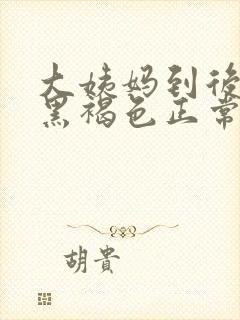 大姨妈到後
黑褐色正常
胡貴